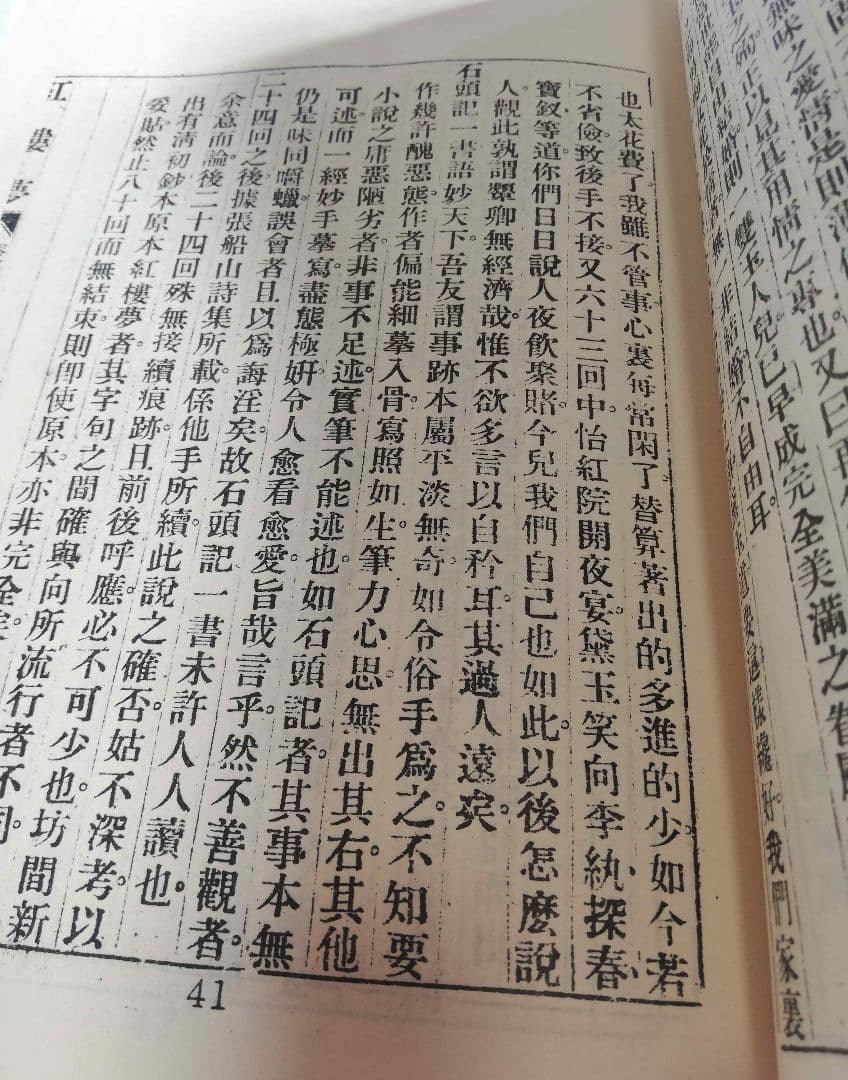 無味之愛情是則
之痴正以見其用情之專也又曰
雙玉人兒已早成完全美滿之眷屬
非結婚不自由耳
好我們家裏
也太花費了我雖不管事心裏每常閑了替算著出的多進的少如今若
不省儉致後手不接又六十三回中怡紅院開夜宴黛玉笑向李紈探春
寶釵等道你們日日說人夜飲聚賭今兒我們自己也如此以後怎麼說
人觀此孰謂顰卿無經濟哉惟不欲多言以自矜耳其過人遠矣
石頭記一書語妙天下吾友謂事跡本屬平淡無奇如令俗手為之不知要
作幾許醜惡態作者偏能細摹入骨寫照如生筆力心思無出其右其他
小說之庸惡陋劣者非事不足述實筆不能述也如石頭記者其事本無
可述而一經妙手摹寫盡態極妍令人愈看愈愛旨哉言乎然不善觀者
仍是味同嚼蠟誤會者且以爲誨淫矣故石頭記一書未許人人讀也
二十四回之後據張船山詩集所載係他手所續此說之確否姑不深考以
余意而論後二十四回殊無接續痕跡且前後呼應必不可少也坊間新
出有清初鈔本原本紅樓夢者其字句之間確與向所流行者不同
委貼然止八十回而無結束則卽使原本亦非完全矣
紅樓夢
41